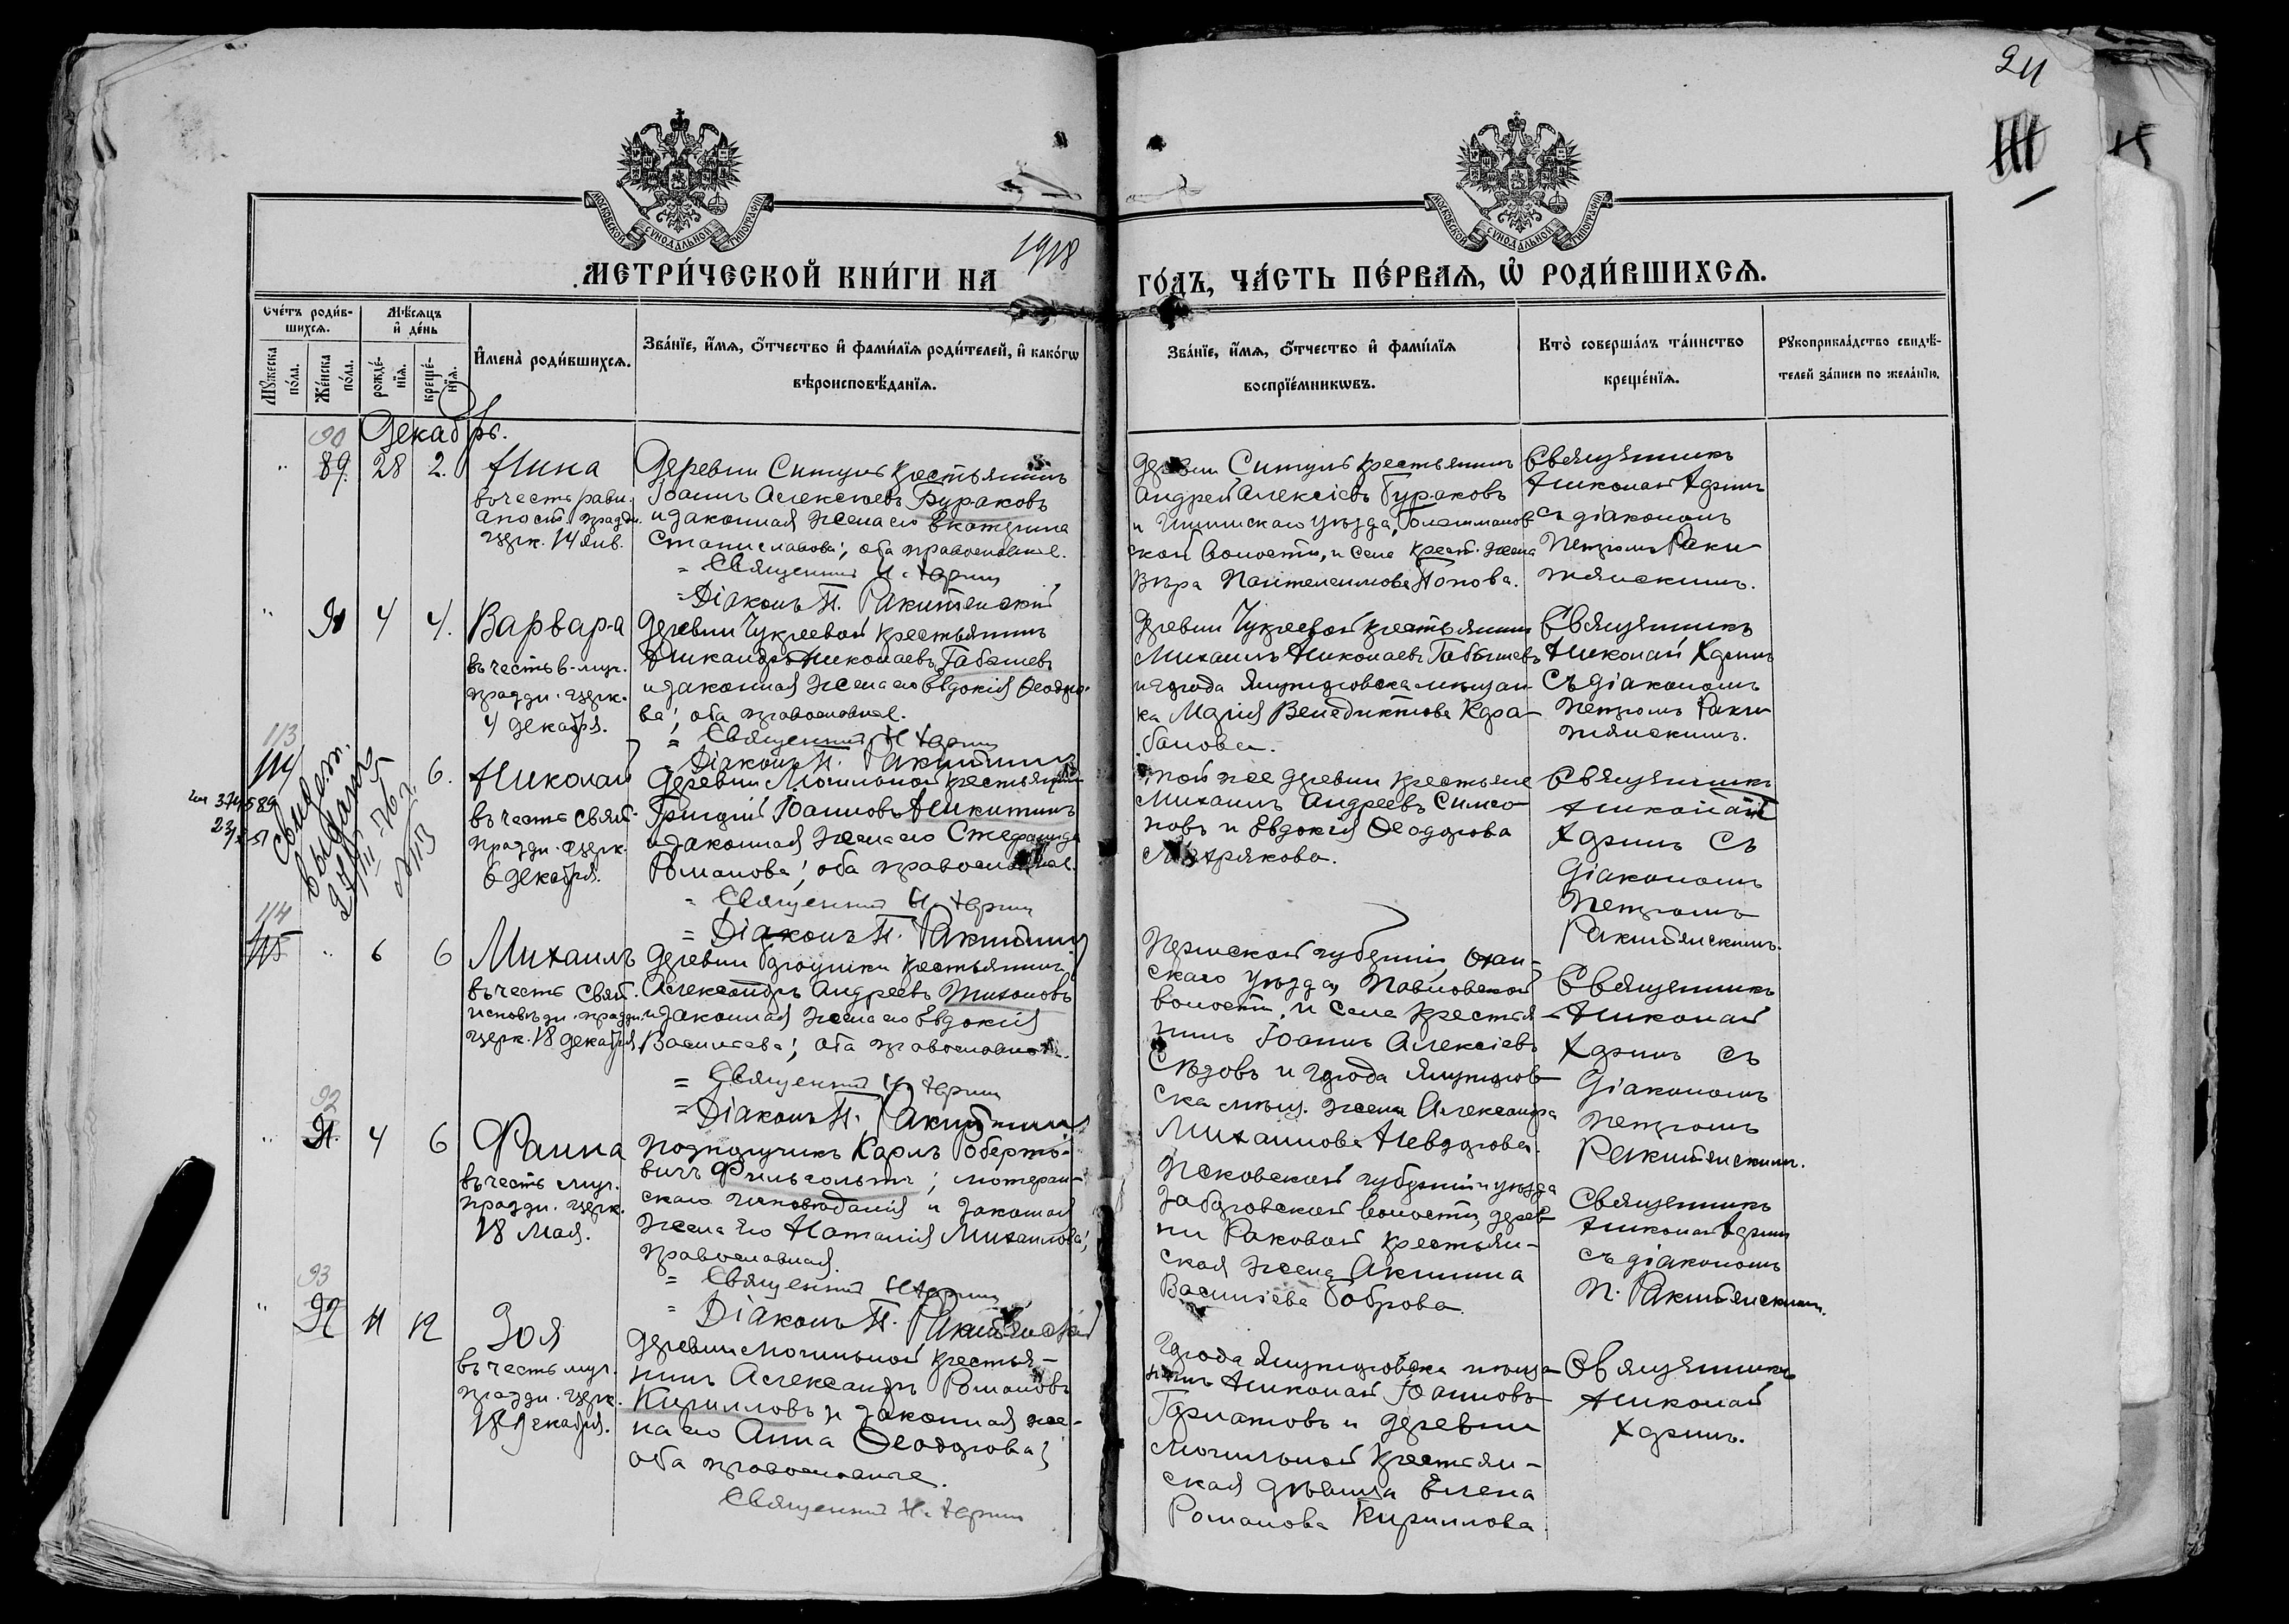 24
МОСКОВСКОЙ СѴНОДАЛЬНОЙ ТИПОГРАФІИ
МОСКОВСКОЙ СѴНОДАЛЬНОЙ ТИПОГРАФІИ
МЕТРИ́ЧЕСКОЙ КНИ́ГИ НА 1918 ГО́ДЪ, ЧА́СТЬ ПЕ́РВАѦ, Ѡ҆ РОДИ́ВШИХСѦ.
Сче́тъ роди́в-
шихсѧ.
Мꙋ́жеска
по́ла.
Же́нска
по́ла.
Мѣ́сѧцъ
и҆ де́нь
рожде́-
нїѧ.
креще́-
нїѧ.
И҆мена̀ роди́вшихсѧ.
Зва́нїе, и҆́мѧ, ѻ҆́тчество и҆ фами́лїѧ роди́телей, и҆ како́гѡ
вѣроисповѣ́данїѧ.
Зва́нїе, и҆́мѧ, ѻ҆́тчество и҆ фами́лїѧ
воспрїе́мникѡвъ.
Кто̀ соверша́лъ та́инство
креще́нїѧ.
Рꙋкоприкла́дство свидѣ́-
телей за́писи по жела́нїю.
Декабрь.
90
89. 28 2. Нина
въ честь равн.
апост. праздн.
церк. 14 янв.
Деревни Ситулъ крестьянинъ
Іоаннъ Алексіевъ Бураковъ
и законная жена его Екатерина
Станиславова; оба православные.
= Священникъ Н.
= Діаконъ П. Ракитянскій
Деревни Ситулъ крестьянинъ
Андрей Алексіевъ Бураковъ
и Ишимскаго уѣзда,
ской волости, и села крест. жена
Вѣра Пантелеимонова Попова.
Священникъ
Николай
съ діакономъ
Петромъ Раки-
тянскимъ.
4 4. Варвара
въ честь в-муч.
праздн. церк.
4 декабря.
Деревни Чукреевой крестьянинъ
Никандръ Николаевъ Габышевъ
и законная жена его Евдокія Ѳеодоро-
ва; оба православные.
= Священникъ Н.
= Діаконъ П. Ракитянскій
Деревни Чукреевой крестьянинъ
Михаилъ Николаевъ Габышевъ
и города Ялуторовска мѣщан-
ка Марія Венедиктова Кара-
банова.
Священникъ
Николай
съ діакономъ
Петромъ Раки-
тянскимъ.
113
114
свидет.
выдано
6. Николай
въ честь свят.
праздн. церк.
6 декабря.
Деревни Могильной крестьянинъ
Григорій Іоанновъ Никитинъ
и законная жена его Стефанида
Романова; оба православные.
= Священникъ Н.
= Діаконъ П. Ракитянскій
той же деревни крестьяне
Михаилъ Андреевъ Симо-
новъ и Евдокія Ѳеодорова
Священникъ
Николай
съ
діакономъ
Петромъ
Ракитянскимъ.
114
115 6 6 Михаилъ
въ честь свят.
исповѣдн. праздн.
церк. 18 декабря.
Деревни крестьянинъ
Александръ Андреевъ Тихоновъ
и законная жена его Евдокія
Васильева; оба православные.
= Священникъ Н.
= Діаконъ П. Ракитянскій
Пермской губерніи, Охан-
скаго уѣзда, Павловской
волости, и села крестья-
нинъ Іоаннъ Алексіевъ
и города Ялуторов-
ска мѣщ. жена Александра
Михаилова Невзорова.
Священникъ
Николай
съ
діакономъ
Петромъ
Ракитянскимъ.
92
91. 4 6 Фаина
въ честь муч.
праздн. церк.
18 мая.
Подпоручикъ Карлъ Роберто-
вичъ Фильгольтъ; лютеран-
скаго исповѣданія и законная
жена его Наталія Михаилова;
православная.
= Священникъ Н.
= Діаконъ П. Ракитянскій
Псковской губерніи и уѣзда
волости, дерев-
ни Раковой крестьян-
ская жена Акилина
Васильева Боброва.
Священникъ
Николай
съ діакономъ
П. Ракитянскимъ.
93
92 11 12 Зоя
въ честь муч.
праздн. церк.
18 декабря.
Деревни Могильной крестья-
нинъ Александръ Романовъ
Кирилловъ и законная же-
на его Анна Ѳеодорова;
оба православные.
Священникъ Н.
Города Ялуторовска мѣща-
нинъ Николай Іоанновъ
и деревни
Могильной крестьян-
ская дѣвица Елена
Романова Кириллова.
Священникъ
Николай